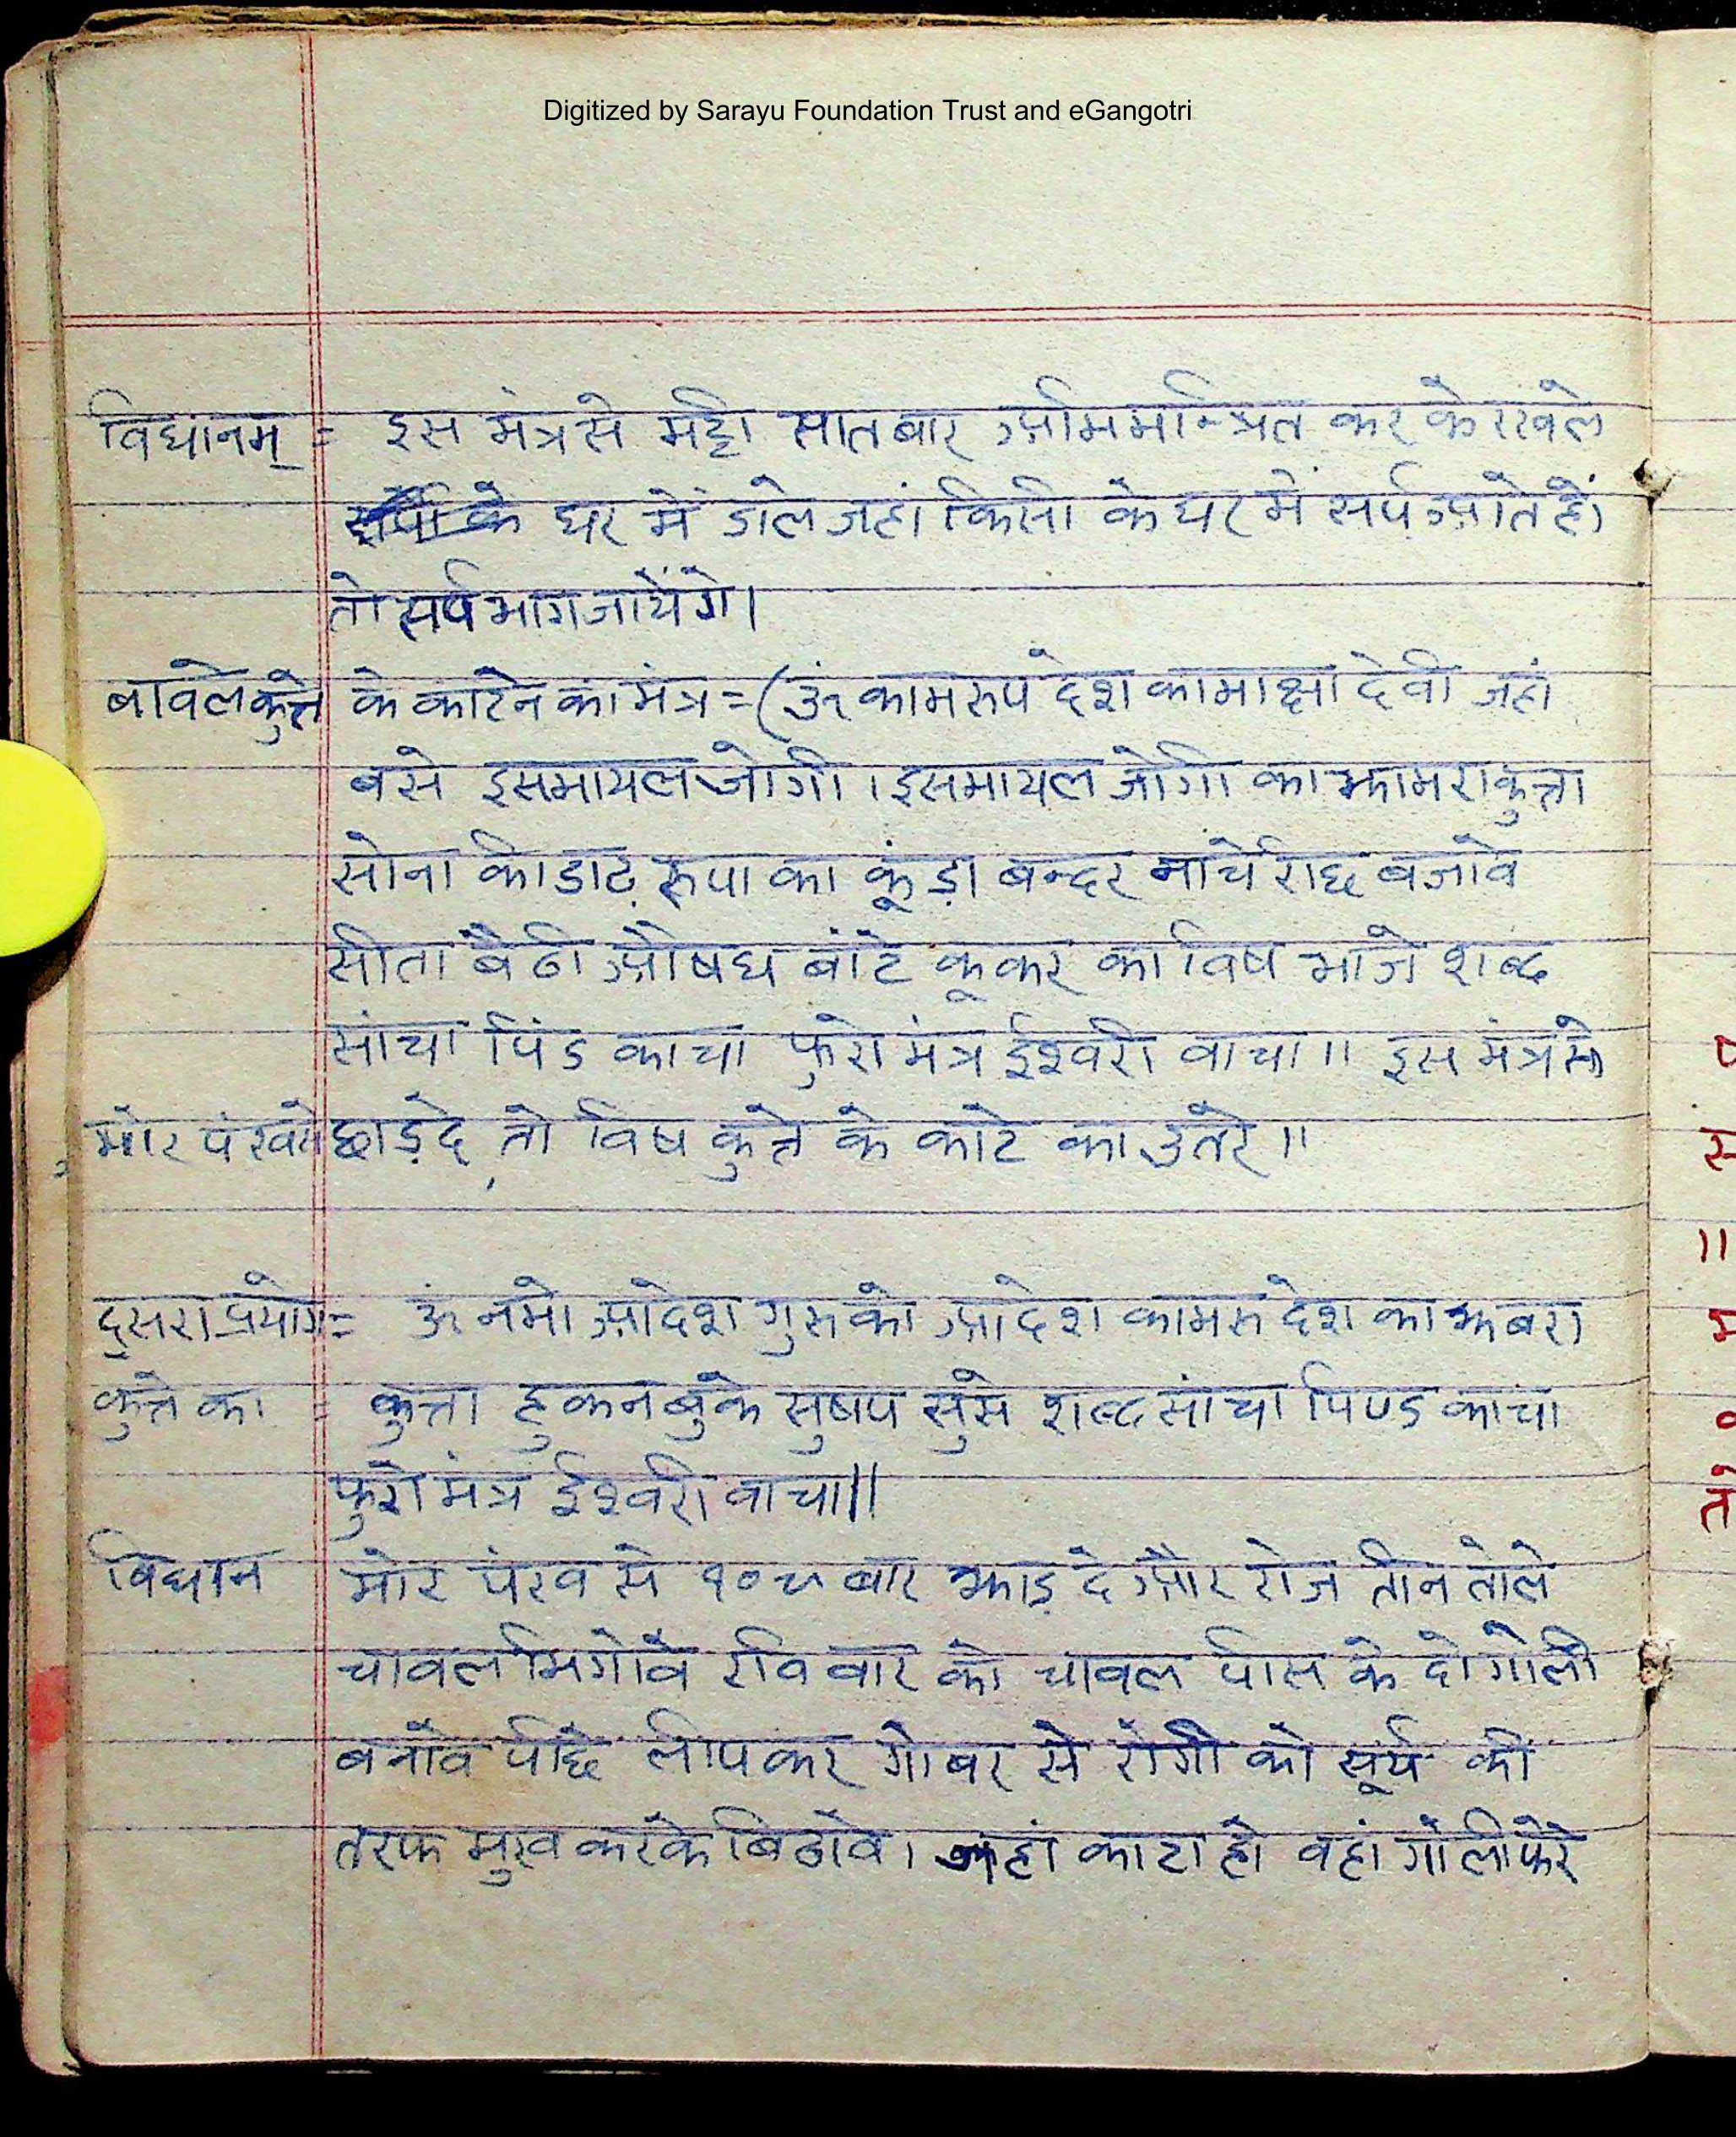 Digitized by Sarayu Foundation Trust and eGangotri
विधानम् = इस मंत्र से मट्टी सात बार अभिमन्त्रित कर के रखले
घर में डाले जहां किसी के घर में सर्प आते हों
तो सर्प भाग जायेंगे।
बावले कुत्ते के काटने का मंत्र = (ॐ कामरुप देश कामाक्षा देवी जहां
बसे इसमायल जोगी । इसमायल जोगी का झामरा कुत्ता
सोना की डाढ़ रूपा का कूंड़ा बन्दर नाचे रीछ बजावे
सीता बैठी औषध बांटे कूकर का विष भाजे शब्द
सांचा पिंड काचा फुरो मंत्र ईश्वरी वाचा ॥ इस मंत्र से
मोर पंख से झाड़ दे तो विष कुत्ते के काटे का उतरे ॥
दूसरा प्रयोग = ॐ नमो आदेश गुरु को आदेश कामरु देश का झबरा
कुत्ते का = कुत्ता हुकन बुके सुषप सुसे शब्द सांचा पिण्ड काचा
फुरो मंत्र ईश्वरी वाचा ॥
विधान मोर पंख से १०८ बार झाड़ दे और रोज तीन तोले
चावल भिगोवै रवि वार को चावल पीस के दो गोली
बनावै पीछे लीप कर गोबर से रोगी को सूर्य की
तरफ मुख करके बिठावे । जहां काटा हो वहां गोली फेरे
प
स
॥
म
तो